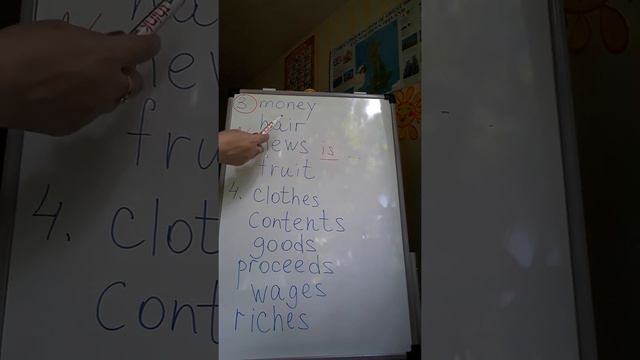 3 money
hair
news is
fruit
4. clothes
contents
goods
proceeds
wages
riches